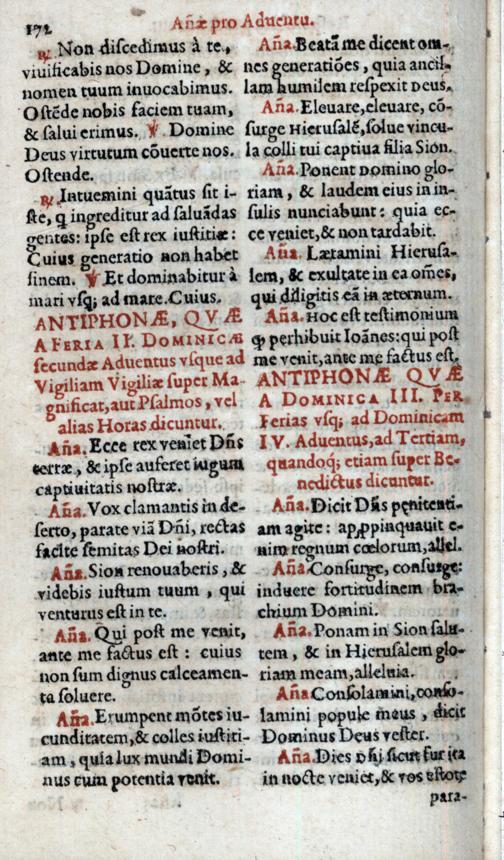 172
Añæ pro Aduentu.
℟. Non discedimus à te,
viuificabis nos Domine, &
nomen tuum inuocabimus.
Ostẽde nobis faciem tuam,
& salui erimus. ℣. Domine
Deus virtutum cõuerte nos.
Ostende.
℟. Intuemini quãtus sit i-
ste, q̃ ingreditur ad saluãdas
gentes: ipse est rex iustitiæ:
Cuius generatio non habet
finem. ℣ Et dominabitur à
mari vsq; ad mare. Cuius.
ANTIPHONÆ, QVÆ
A FERIA II. DOMINICÆ
secundæ Aduentus vsque ad
Vigiliam Vigiliæ super Ma-
gnificat, aut Psalmos, vel
alias Horas dicuntur.
Aña. Ecce rex veniet Dñs
terræ, & ipse auferet iugum
captiuitatis nostræ.
Aña. Vox clamantis in de-
serto, parate viã Dñi, rectas
facite semitas Dei nostri.
Aña. Sion renouaberis, &
videbis iustum tuum, qui
venturus est in te.
Aña. Qui post me venit,
ante me factus est: cuius
non sum dignus calceamen-
ta soluere.
Aña. Erumpent mõtes iu-
cunditatem, & colles iustiti-
am, quia lux mundi Domi-
nus cum potentia venit.
Aña. Beatã me dicent om-
nes generatiões, quia ancil-
lam humilem respexit Deus.
Aña. Eleuare, eleuare, cõ-
surge Hierusalẽ, solue vincu-
la colli tui captiua filia Sion.
Aña. Ponent Domino glo-
riam, & laudem eius in in-
sulis nunciabunt: quia ec-
ce veniet, & non tardabit.
Aña. Lætamini Hierusa-
lem, & exultate in ea oẽs,
qui diligitis eã in æternum.
Aña. Hoc est testimonium
q̃ perhibuit Ioãnes: qui post
me venit, ante me factus est.
ANTIPHONÆ QVÆ
A DOMINICA III. PER
Ferias vsq; ad Dominicam
IV. Aduentus, ad Tertiam,
quandoq; etiam super Be-
nedictus dicuntur.
Aña. Dicit Dñs pęnitenti-
am agite: appropinquauit e-
nim regnum cœlorum, allel.
Aña. Consurge, consurge:
induere fortitudinem bra-
chium Domini.
Aña. Ponam in Sion salu-
tem, & in Hierusalem glo-
riam meam, alleluia.
Aña Consolamini, conso-
lamini popule meus, dicit
Dominus Deus vester.
Aña. Dies Dñi sicut fur ita
in nocte veniet, & vos estote
para-